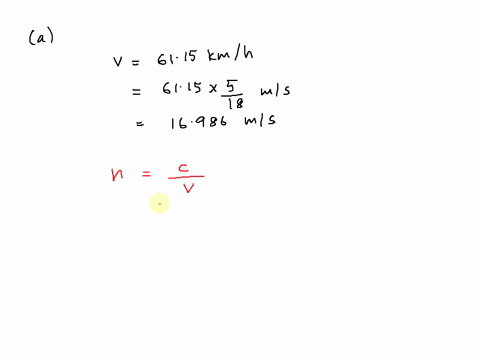 (a)
v = 61.15 km/h
= 61.15 × 5/18 m/s
= 16.986 m/s
n = c/v